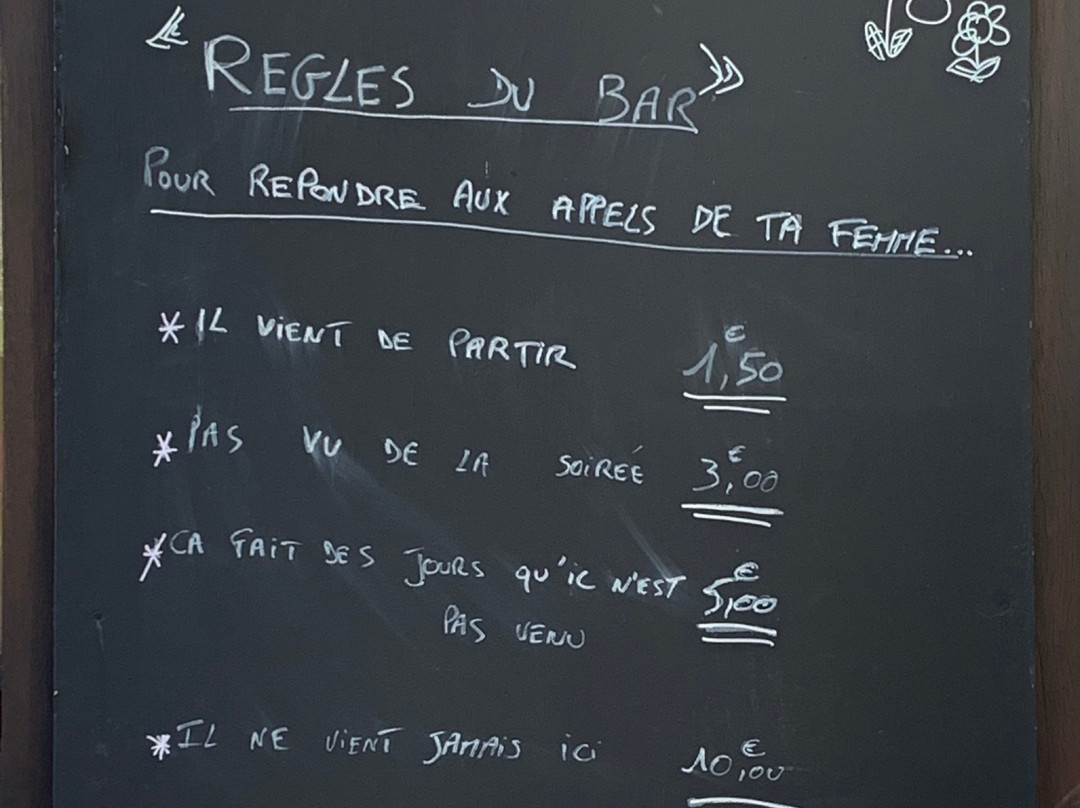 « REGLES DU BAR »
POUR REPONDRE AUX APPELS DE TA FEMME...
* IL VIENT DE PARTIR 1,50 €
* PAS VU DE LA SOIREÉ 3,00 €
* CA FAIT DES JOURS QU'IL N'EST 5,00 €
PAS VENU
* IL NE VIENT JAMAIS ICI 10,00 €